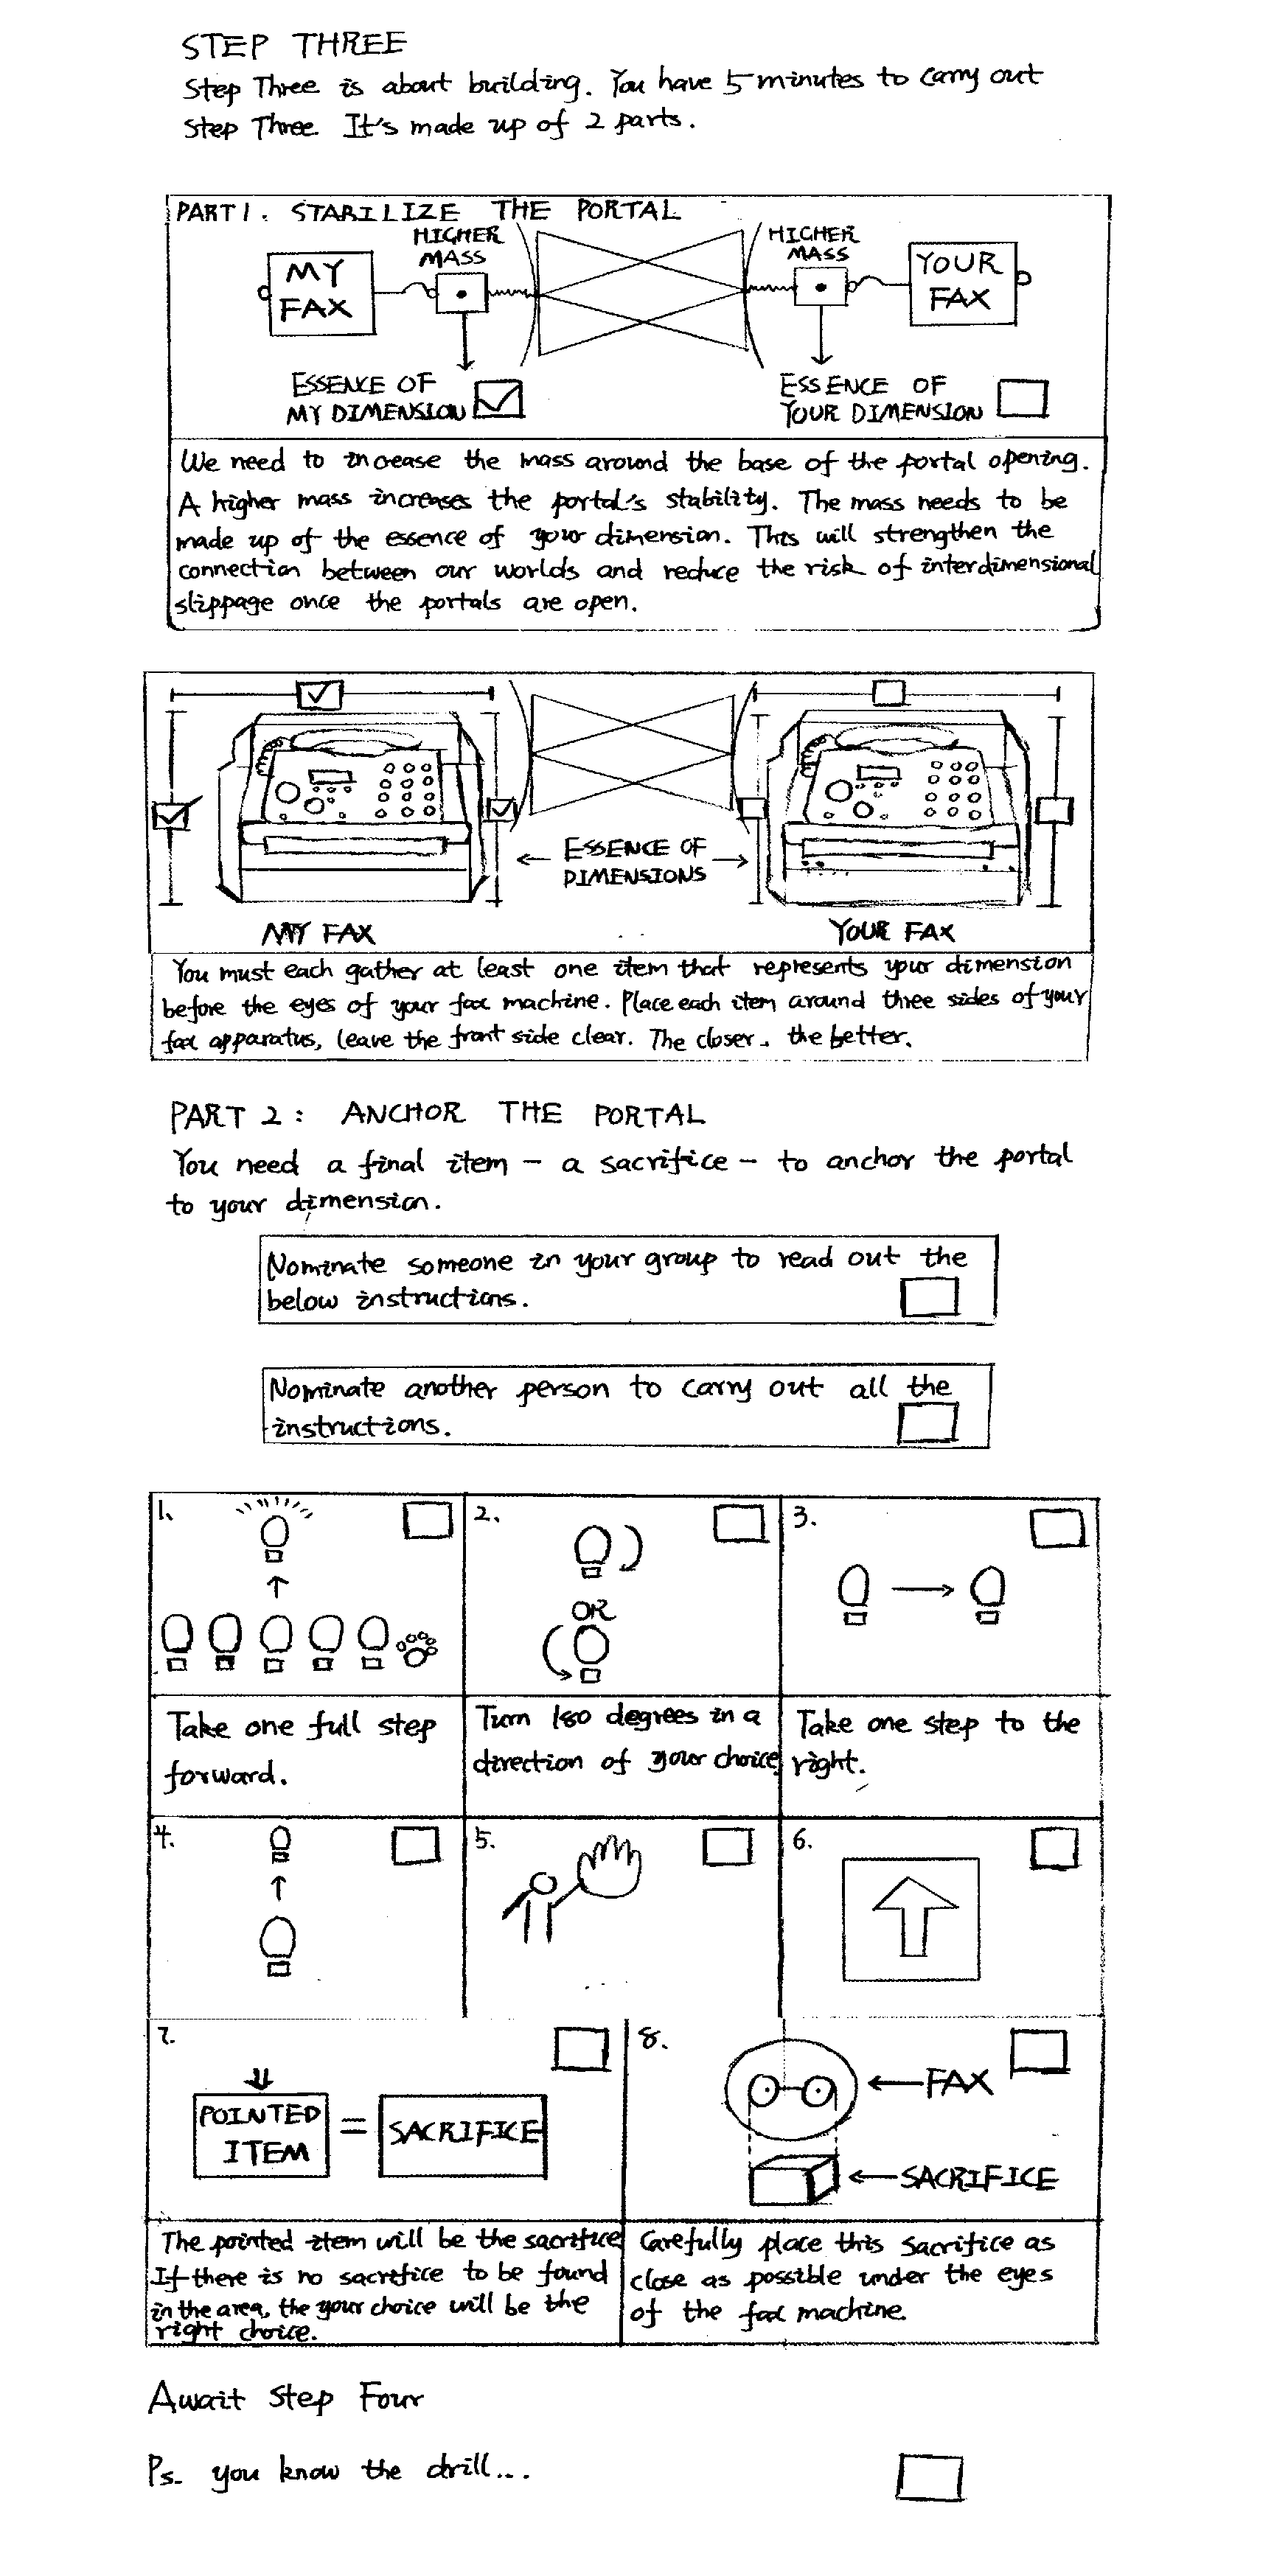 STEP THREE
Step Three is about building. You have 5 minutes to carry out
Step Three. It's made up of 2 parts.
PART 1. STABILIZE THE PORTAL
HIGHER
MASS
HIGHER
MASS
MY
FAX
YOUR
FAX
ESSENCE OF
MY DIMENSION
ESSENCE OF
YOUR DIMENSION
We need to increase the mass around the base of the portal opening.
A higher mass increases the portal's stability. The mass needs to be
made up of the essence of your dimension. This will strengthen the
connection between our worlds and reduce the risk of interdimensional
slippage once the portals are open.
ESSENCE OF
DIMENSIONS
MY FAX
YOUR FAX
You must each gather at least one item that represents your dimension
before the eyes of your fax machine. Place each item around three sides of your
fax apparatus, leave the front side clear. The closer. the better.
PART 2: ANCHOR THE PORTAL
You need a final item - a sacrifice - to anchor the portal
to your dimension.
Nominate someone in your group to read out the
below instructions.
Nominate another person to carry out all the
instructions.
1.
Take one full step
forward.
2.
OR
Turn 180 degrees in a
direction of your choice
3.
Take one step to the
right.
4.
5.
6.
7.
POINTED
ITEM
=
SACRIFICE
The pointed item will be the sacrifice
If there is no sacrifice to be found
in the area, the your choice will be the
right choice.
8.
FAX
SACRIFICE
Carefully place this sacrifice as
close as possible under the eyes
of the fax machine.
Await Step Four
Ps. you know the drill...